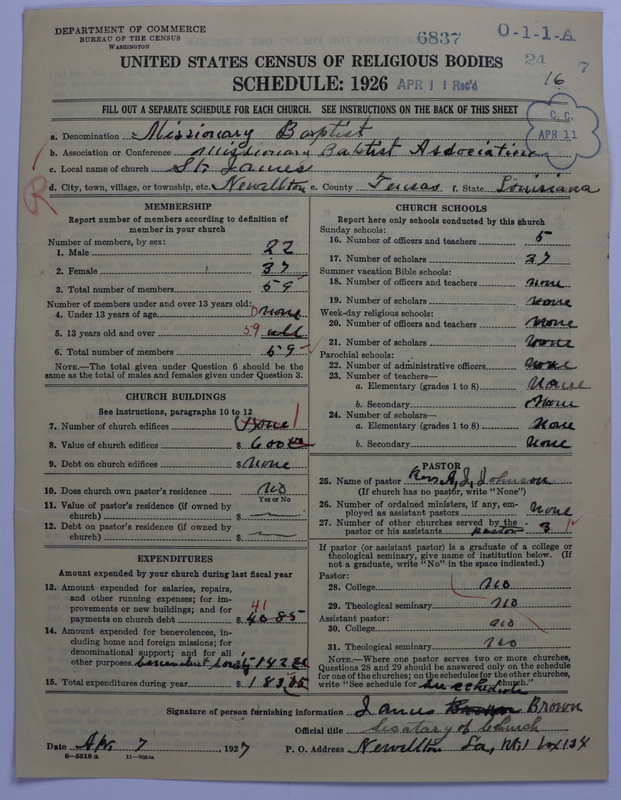 DEPARTMENT OF COMMERCE
BUREAU OF THE CENSUS
WASHINGTON
6837
O-1-1-A
24 7
16
UNITED STATES CENSUS OF RELIGIOUS BODIES
SCHEDULE: 1926
APR 11 Rec'd
FILL OUT A SEPARATE SCHEDULE FOR EACH CHURCH. SEE INSTRUCTIONS ON THE BACK OF THIS SHEET
C. C.
APR 11
a. Denomination Missionary Baptist
b. Association or Conference Missionary Baptist Association
c. Local name of church St. James
d. City, town, village, or township, etc. Newellton e. County Tensas f. State Louisiana
R
MEMBERSHIP
Report number of members according to definition of member in your church
Number of members, by sex:
1. Male 22
2. Female 37
3. Total number of members 59
Number of members under and over 13 years old:
4. Under 13 years of age 0 none
5. 13 years old and over 59 all
6. Total number of members 59
NOTE.—The total given under Question 6 should be same as the total of males and females given under Question 3.
CHURCH BUILDINGS
See instructions, paragraphs 10 to 12
7. Number of church edifices (1) one 1
8. Value of church edifices $ 600 00
9. Debt on church edifices $ None
10. Does church own pastor's residence no
Yes or No
11. Value of pastor's residence (if owned by church) $
12. Debt on pastor's residence (if owned by church) $
EXPENDITURES
Amount expended by your church during last fiscal year
13. Amount expended for salaries, repairs, and other running expenses; for improvements or new buildings; and for payments on church debt $ 40.85
41
14. Amount expended for benevolences, including home and foreign missions; for denominational support; and for all other purposes $ 142
15. Total expenditures during year $ 183
CHURCH SCHOOLS
Report here only schools conducted by this church
Sunday schools:
16. Number of officers and teachers 5
17. Number of scholars 37
Summer vacation Bible schools:
18. Number of officers and teachers none
19. Number of scholars none
Week-day religious schools:
20. Number of officers and teachers None
21. Number of scholars none
Parochial schools:
22. Number of administrative officers none
23. Number of teachers—
a. Elementary (grades 1 to 8) None
b. Secondary None
24. Number of scholars—
a. Elementary (grades 1 to 8) None
b. Secondary None
PASTOR
25. Name of pastor Rev. A. J. Johnson
(If church has no pastor, write "None")
26. Number of ordained ministers, if any, employed as assistant pastors None
27. Number of other churches served by the pastor or his assistants pastor 3
If pastor (or assistant pastor) is a graduate of a college or theological seminary, give name of institution below. (If not a graduate, write "No" in the space indicated.)
Pastor:
28. College no
29. Theological seminary no
Assistant pastor:
30. College no
31. Theological seminary no
NOTE.—Where one pastor serves two or more churches, Questions 28 and 29 should be answered only on the schedule for one of the churches; on the schedules for the other churches, write "See schedule for church."
see schedule
Signature of person furnishing information James Brown
Official title Secatary of Church
Date Apr. 7, 1927 P. O. Address Newellton La, Rt 1 box 134
8—5518 a